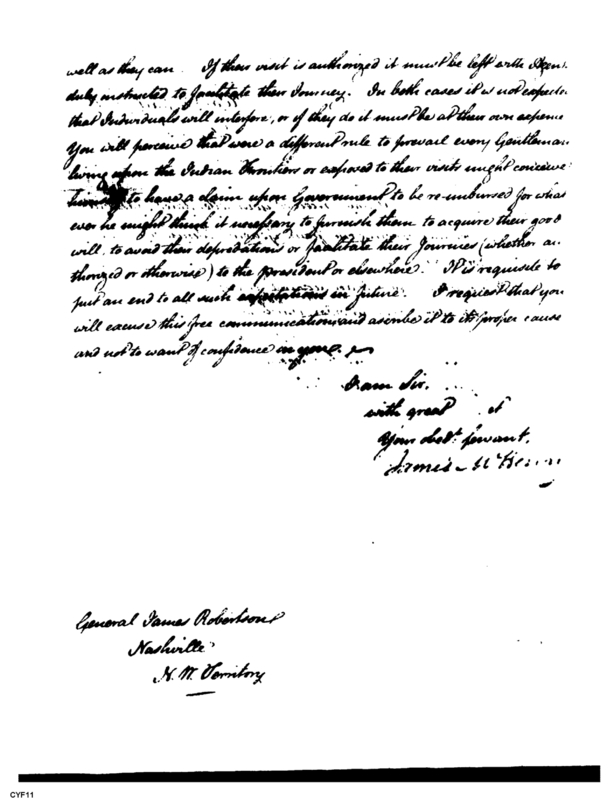 well as they can. If their visit is authorized it must be left with
duly instructed to facilitate their Journey. In both cases it is not
that Individuals will interfere, or if they do it must be at their own expense
You will perceive that were a different rule to prevail every Gentleman
living upon the Indian Frontiers or exposed to their visits might conceive
himself to have a claim upon Government to be re-imbursed for what
ever he might think it necessary to furnish them to acquire their good
will, to avoid their depredations or facilitate their Journies (whether au-
thorized or otherwise) to the president or elsewhere. It is requisite to
put an end to all such expectations in future. I request that you
will excuse this free communication and ascribe it to its proper cause
and not to want of confidence in you.
I am Sir.
with great
Your obedt. servant,
James McHenry
General James Robertson
Nashville
N. W. Territory
CYF11